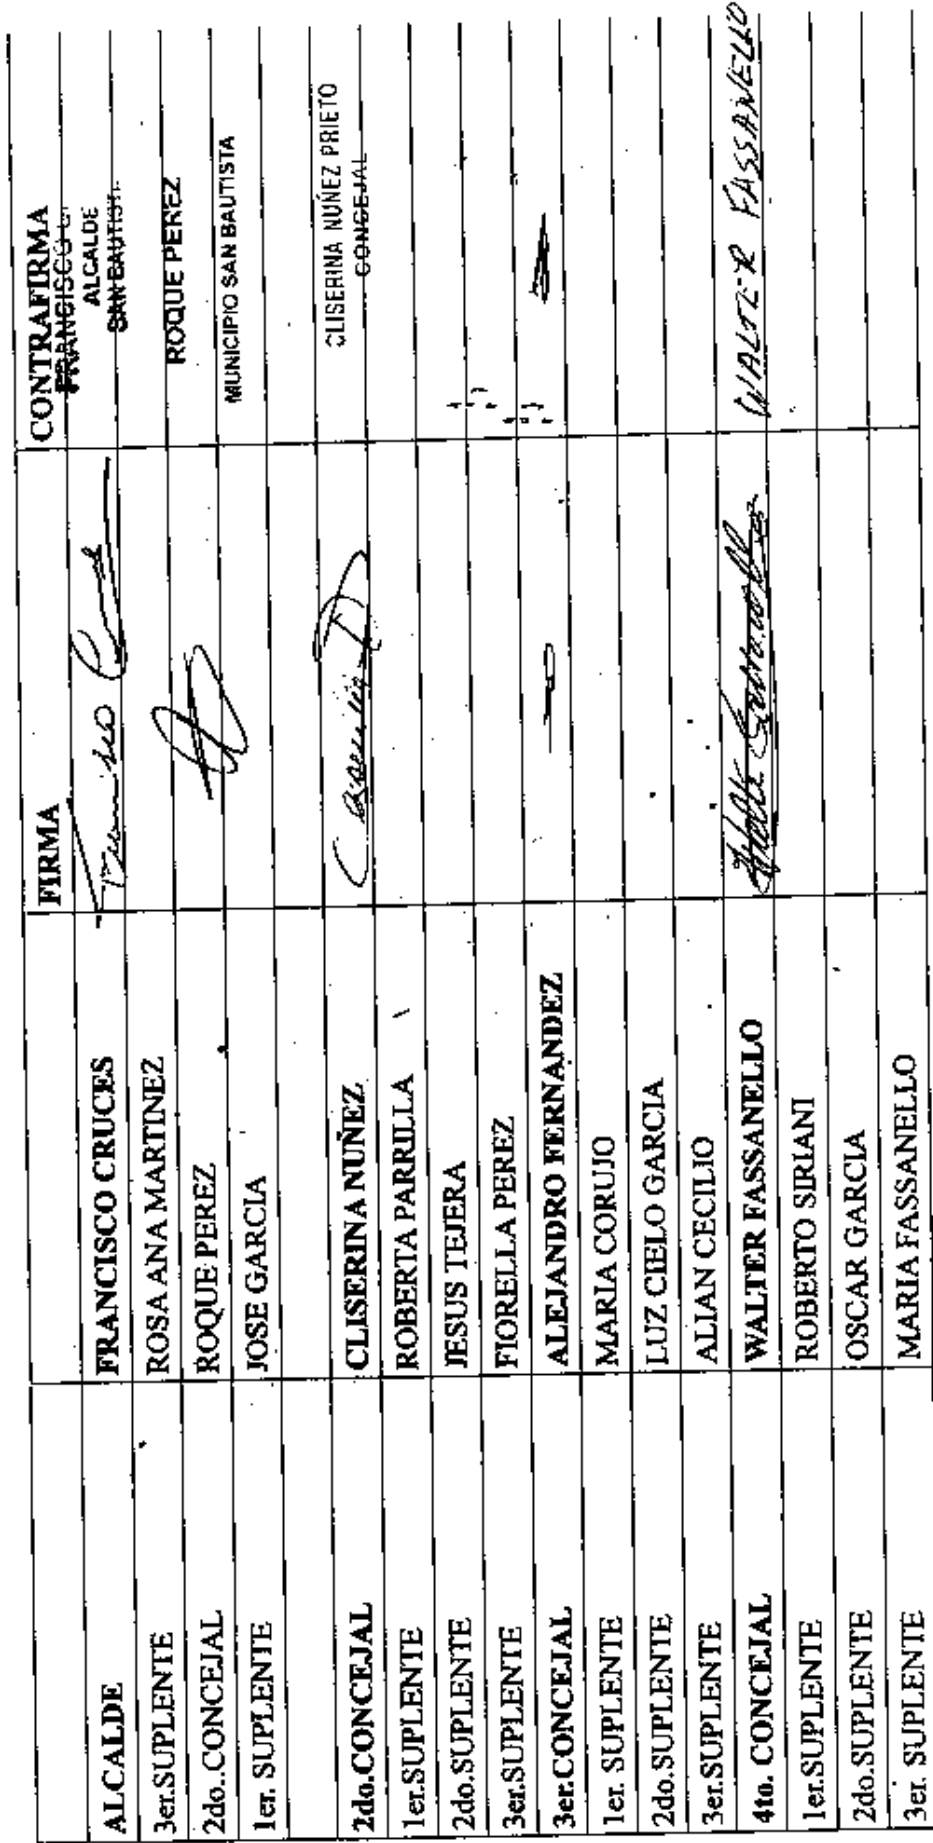 FIRMA CONTRAFIRMA
ALCALDE FRANCISCO CRUCES FRANCISCO
ALCALDE
SAN BAUTIST
3er.SUPLENTE ROSA ANA MARTINEZ
2do..CONCEJAL ROQUE PEREZ ROQUE PEREZ
1er. SUPLENTE JOSE GARCIA MUNICIPIO SAN BAUTISTA
2do.CONCEJAL CLISERINA NUÑEZ CLISERINA NUÑEZ PRIETO
CONCEJAL
1er.SUPLENTE ROBERTA PARRILLA
2do.SUPLENTE JESUS TEJERA
3er.SUPLENTE FIORELLA PEREZ
3er.CONCEJAL ALEJANDRO FERNANDEZ
1er. SUPLENTE MARIA CORUJO
2do.SUPLENTE LUZ CIELO GARCIA
3er.SUPLENTE ALIAN CECILIO
4to. CONCEJAL WALTER FASSANELLO WALTER FASSANELLO
1er.SUPLENTE ROBERTO SIRIANI
2do.SUPLENTE OSCAR GARCIA
3er. SUPLENTE MARIA FASSANELLO